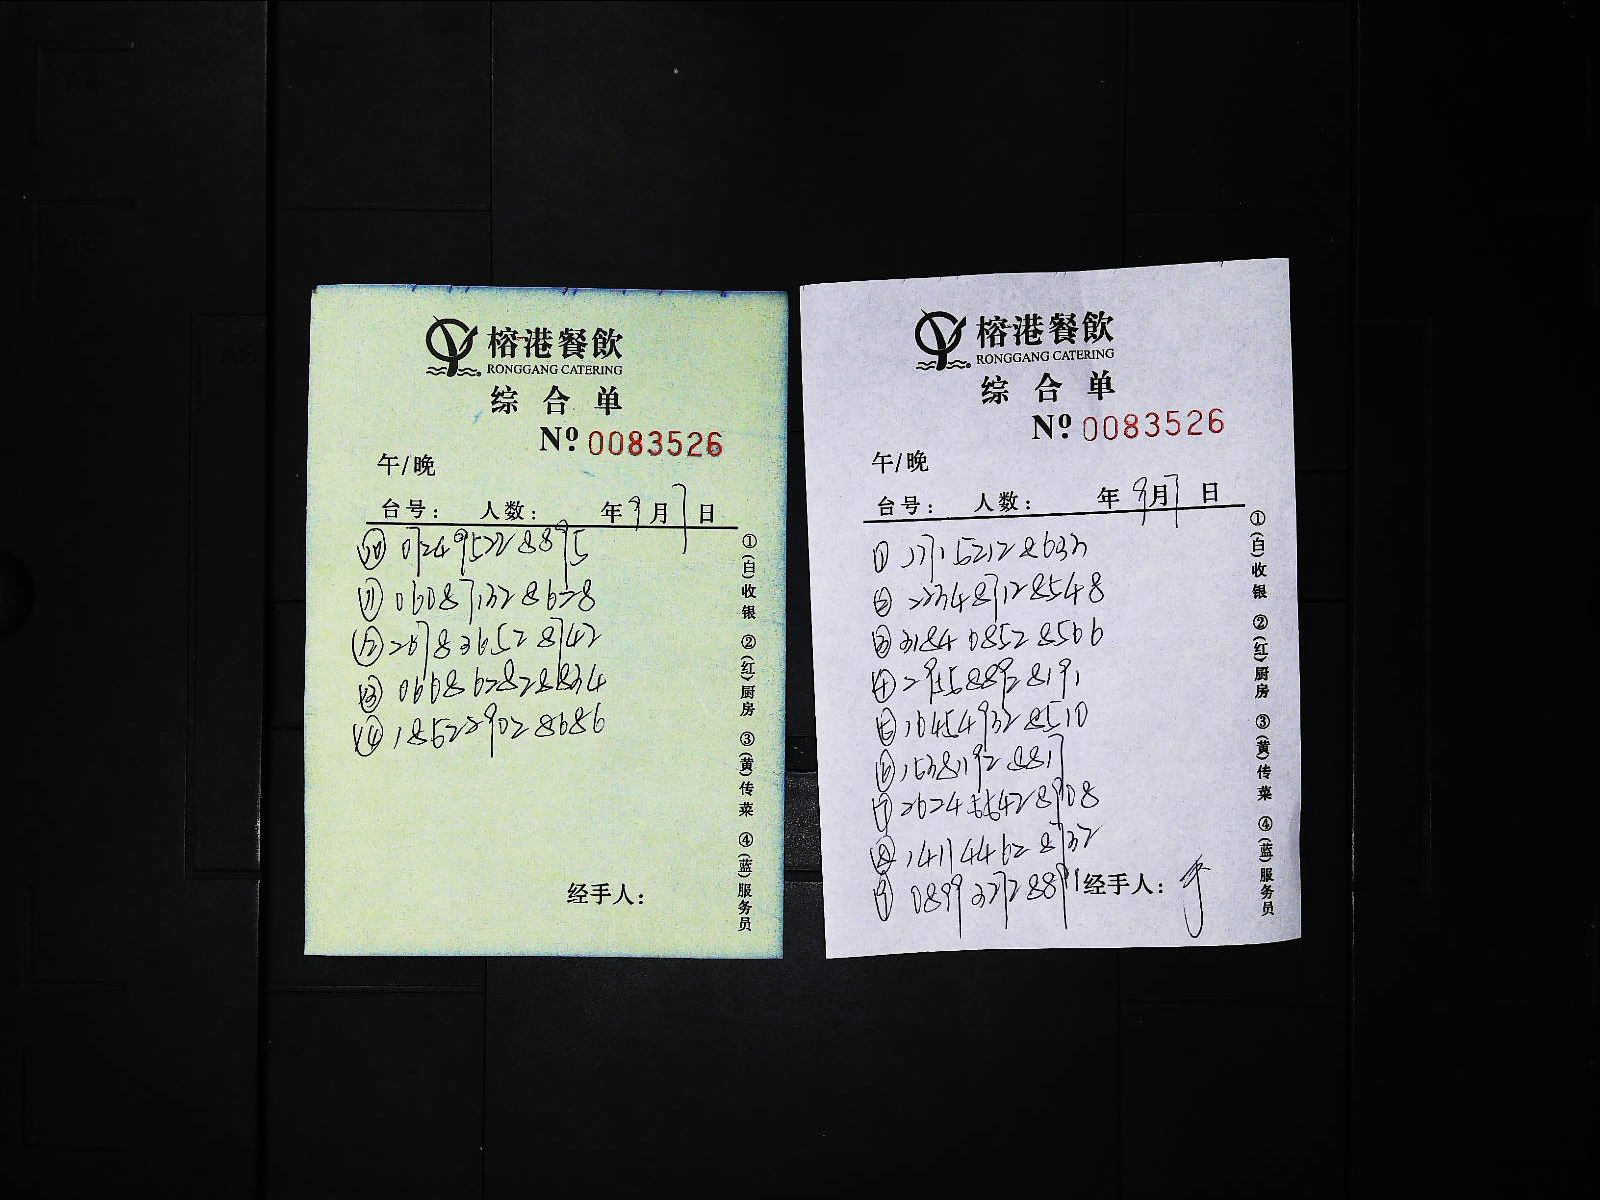 榕港餐飲
RONGGANG CATERING
综合单
Nº 0083526
午/晚
台号： 人数： 年9月7日
⑩ 072495228895
⑪ 060871328628
⑫ 267836528742
⑬ 066862828834
⑭ 185229028686
经手人：
①(白)收银 ②(红)厨房 ③(黄)传菜 ④(蓝)服务员
榕港餐飲
RONGGANG CATERING
综合单
Nº 0083526
午/晚
台号： 人数： 年9月7日
① 177152128633
② 223487128548
③ 318408528566
④ 295588928191
⑤ 104549328510
⑥ 153811928817
⑦ 262455428908
⑧ 141144628732
⑨ 089937728891
经手人：
①(白)收银 ②(红)厨房 ③(黄)传菜 ④(蓝)服务员